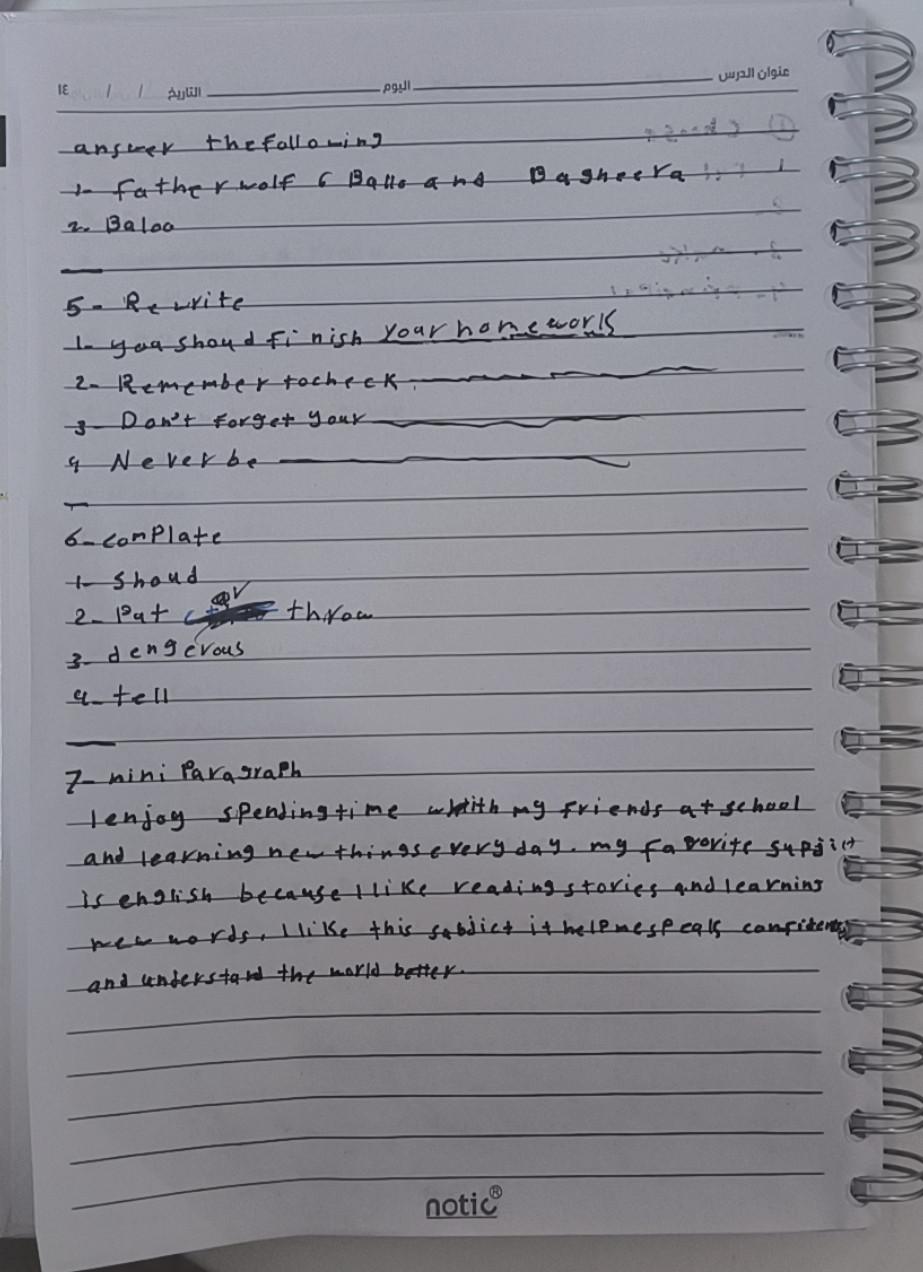 عنوان الدرس اليوم التاريخ / / ١٤
answer the following
1- father wolf 6 Ballo and Bagheera
2- Baloo
5- Rewrite
1- you shoud finish your homework
2- Remember to check
3- Don't forget your
4 Never be
6- complate
1- shoud
2- Put or throw
3- dengerous
4- tell
7- mini Paragraph
I enjoy spending time with my friends at school
and learning new things every day. my favorite supjict
is english because I like reading stories and learning
new words. I like this subdict it help me speak confidently
and understand the world better.
notic®